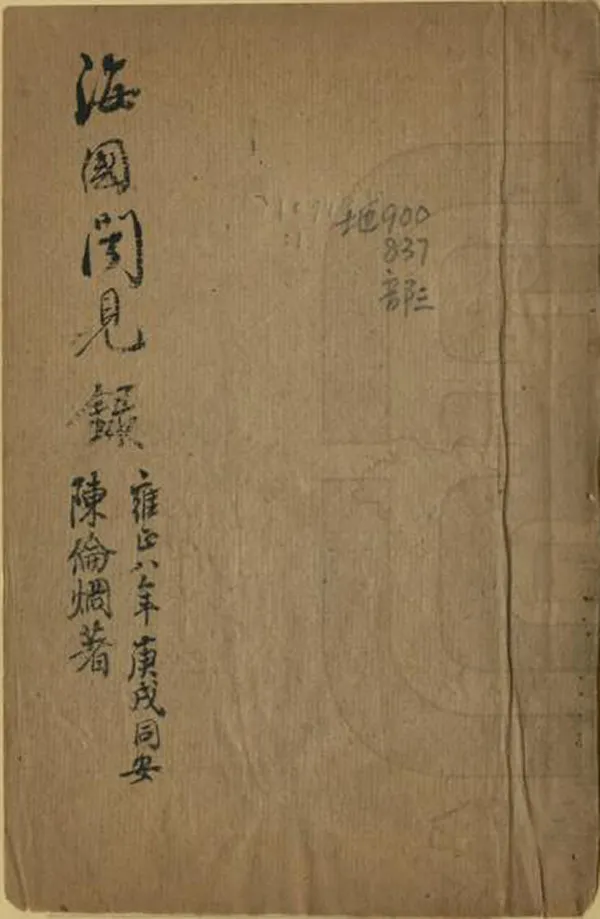 海國聞見錄
雍正八年庚戌同安
陳倫烱著
地900
837
部三